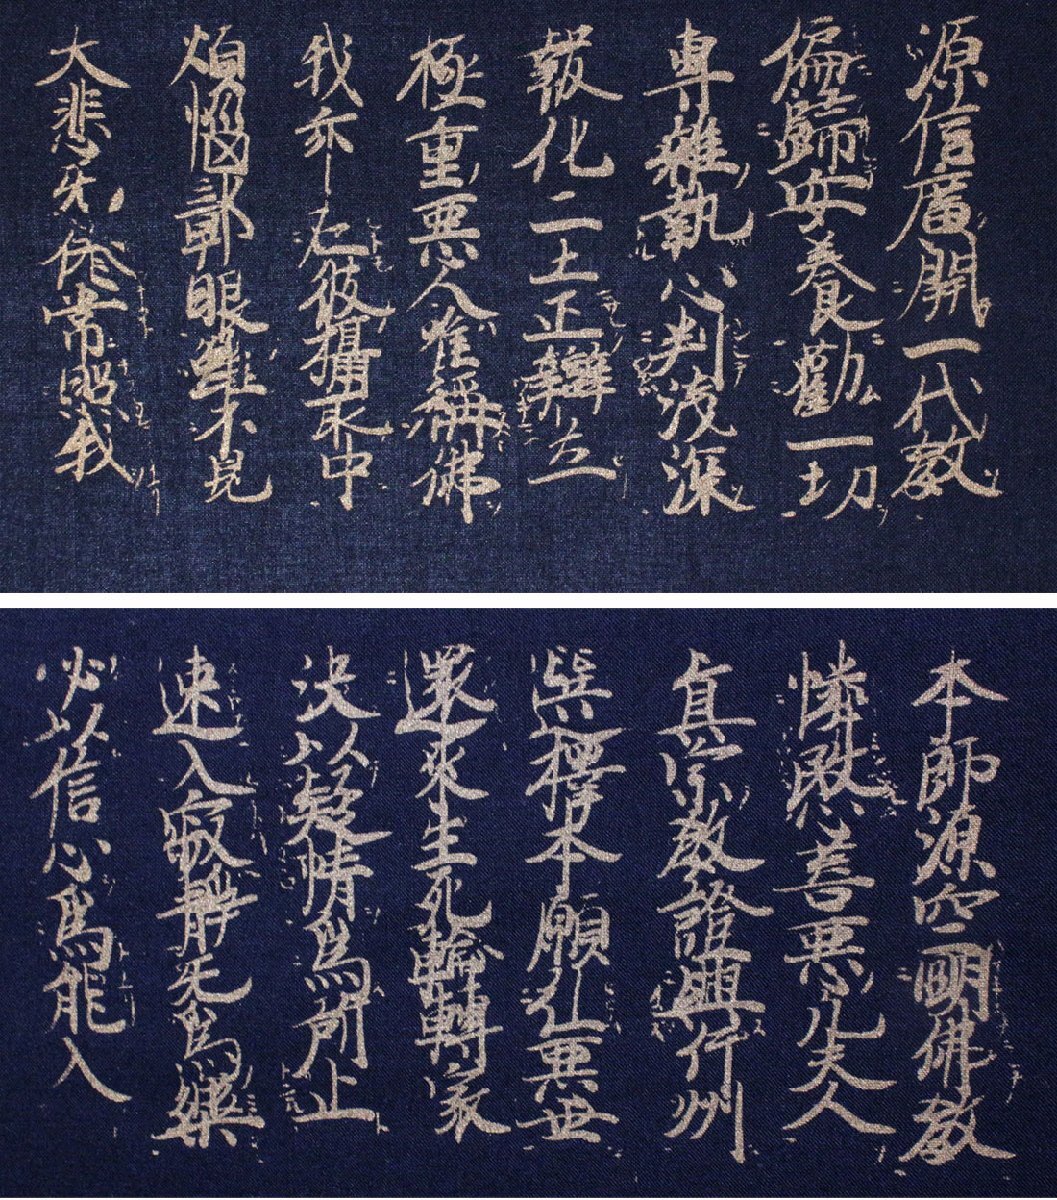 源信廣開一代教
偏歸安養勸一切
専雜執心判淺深
報化二土正辯立
極重悪人唯稱佛
我亦在彼攝取中
煩惱鄣眼雖不見
大悲无倦常照我
本師源空明佛教
憐愍善悪凡夫人
眞宗教證興片州
選擇本願弘悪世
還來生死輪轉家
決以疑情爲所止
速入寂靜无爲樂
必以信心爲能入